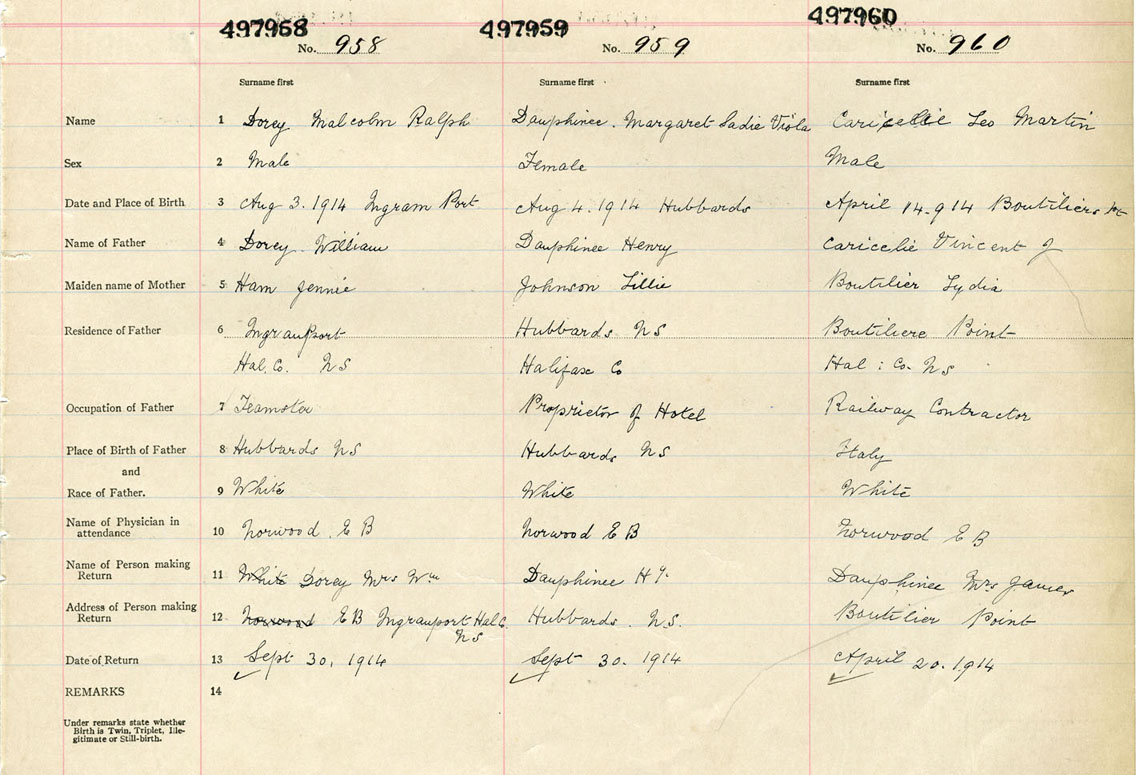 497958 497959 497960
No. 958 No. 959 No. 960
Surname first Surname first Surname first
Name 1 Dorey Malcolm Ralph Dauphinee. Margaret Sadie Viola Leo Martin
Sex 2 Male Female Male
Date and Place of Birth 3 Aug 3. 1914 Ingram Port Aug 4. 1914 Hubbards April 14. 914 Boutiliers
Name of Father 4 Dorey. William Dauphinee Henry Caricelie Vincent J
Maiden name of Mother 5 Ham Jennie Johnson Lillie Boutilier Lydia
Residence of Father 6 Ingramport Hubbards. NS Boutiliere Point
Hal. Co. NS Halifax Co Hal : Co. NS
Occupation of Father 7 Teamster Proprietor of Hotel Railway Contractor
Place of Birth of Father 8 Hubbards NS Hubbards NS Italy
and
Race of Father. 9 White White White
Name of Physician in
attendance 10 Norwood. E B Norwood E B Norwood E B
Name of Person making
Return 11 White Dorey Mrs Wm Dauphinee Hy. Dauphinee Mrs James
Address of Person making
Return 12 Norwood E B Ingramport Hal C. Hubbards. N.S. Boutilier Point
NS
Date of Return 13 Sept 30. 1914 Sept 30. 1914 April 20. 1914
REMARKS 14
Under remarks state whether
Birth is Twin, Triplet, Ille-
gitimate or Still-birth.